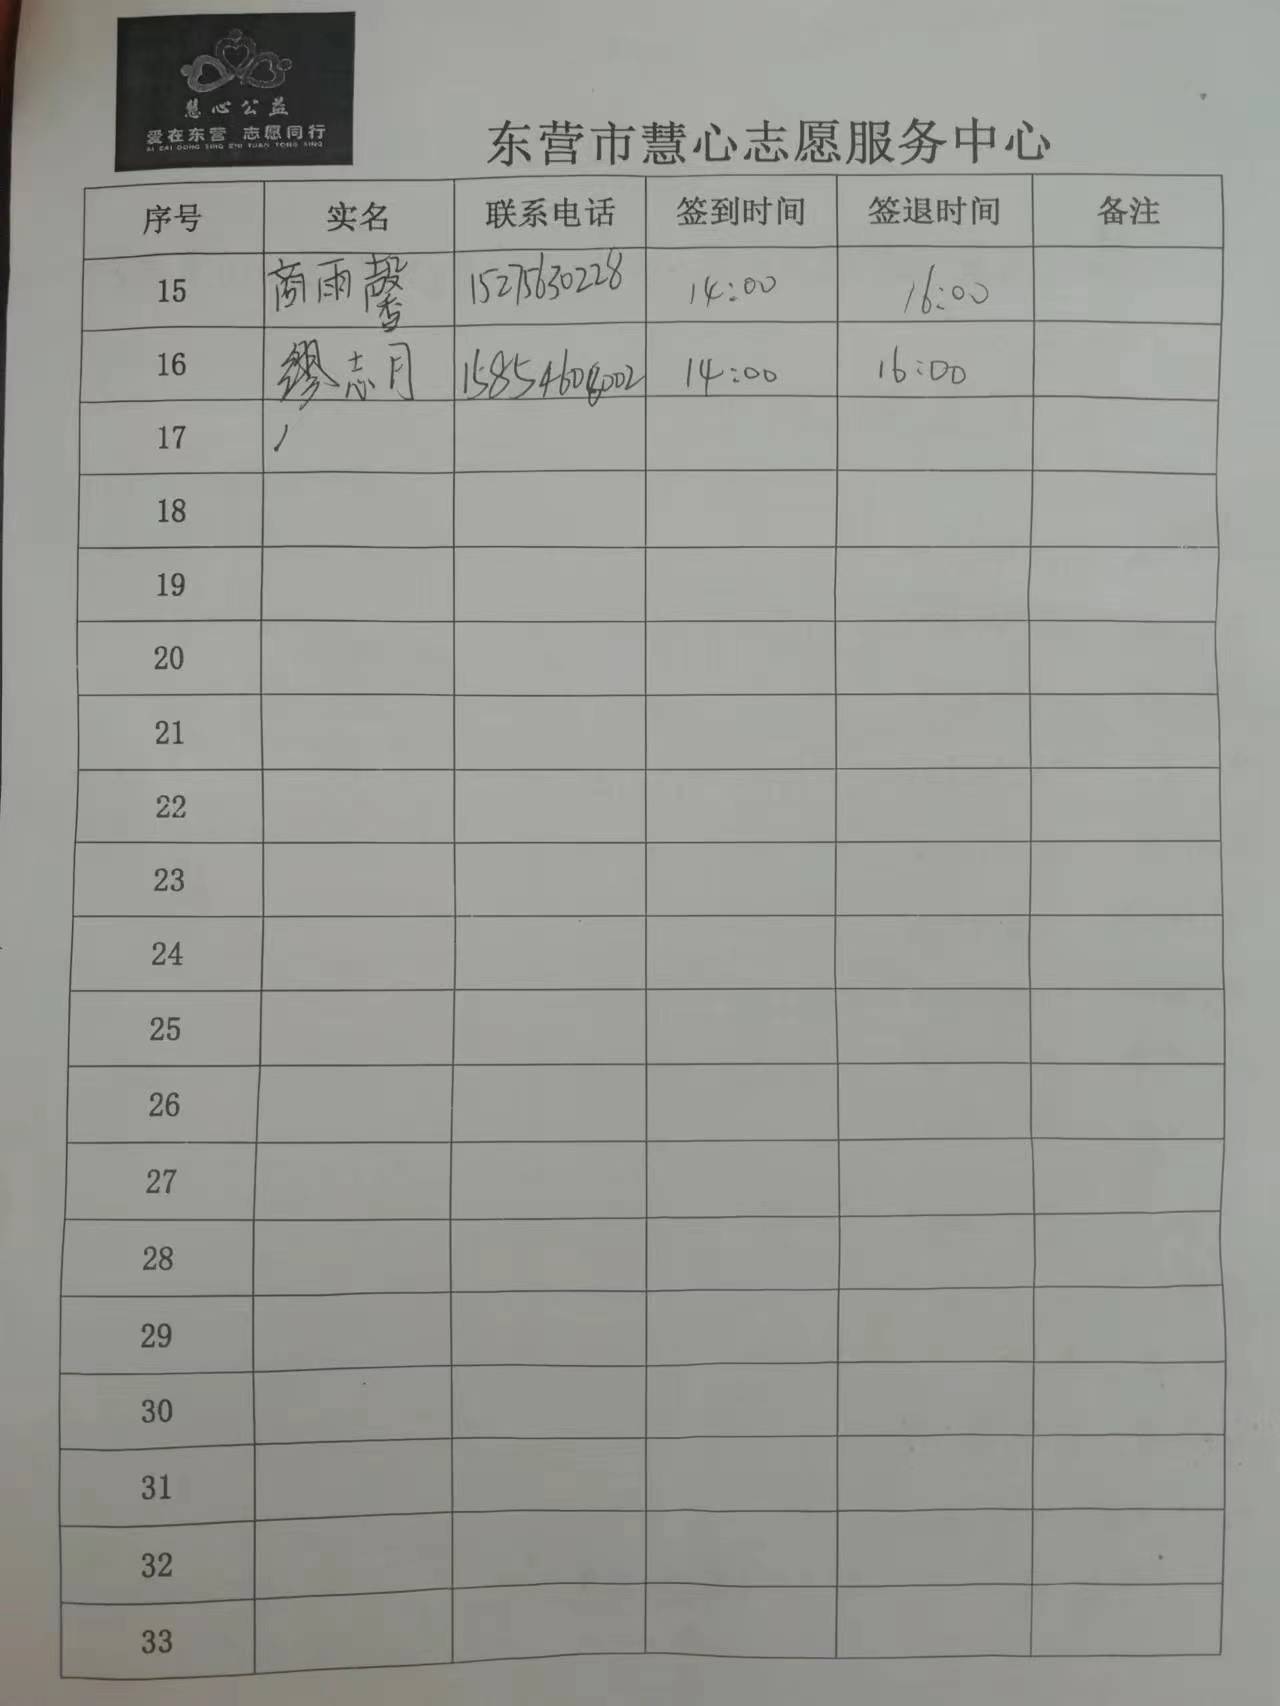 慧心公益
爱在东营 志愿同行
AI ZAI DONG YING ZHI YUAN TONG XING
东营市慧心志愿服务中心
序号 实名 联系电话 签到时间 签退时间 备注
15 商雨馨 15275630228 14:00 16:00
16 缪志月 14:00 16:00
17
18
19
20
21
22
23
24
25
26
27
28
29
30
31
32
33